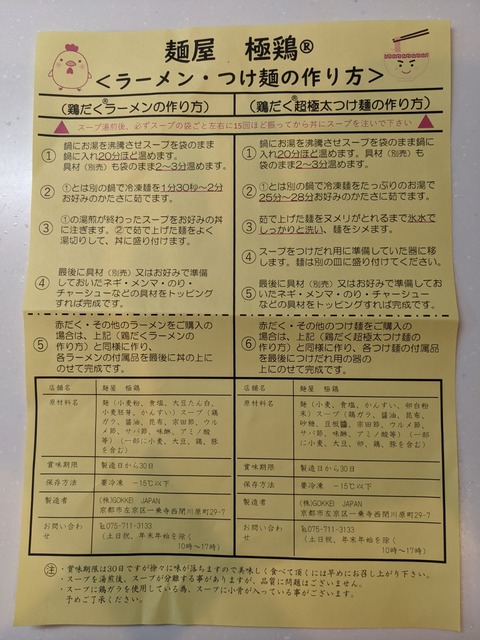 麺屋 極鶏®
<ラーメン・つけ麺の作り方>
(鶏だく®ラーメンの作り方)
▲スープ湯煎後、必ずスープの袋ごと左右に15回ほど振ってから丼にスープを注いで下さい▲
① 鍋にお湯を沸騰させスープを袋のまま
鍋に入れ20分ほど温めます。
具材(別売)も袋のまま2〜3分温めます。
② ①とは別の鍋で冷凍麺を1分30秒〜2分
お好みのかたさに茹でます。
③ ①の湯煎が終わったスープをお好みの丼
に注ぎます。②で茹で上げた麺をよく
湯切りして、丼に盛り付けます。
④ 最後に具材(別売)又はお好みで準備
しておいたネギ・メンマ・のり・
チャーシューなどの具材をトッピング
すれば完成です。
⑤ 赤だく・その他のラーメンをご購入の
場合は、上記(鶏だくラーメンの
作り方)と同様に作り、
各ラーメンの付属品を最後に丼の上に
のせて完成です。
店舗名 麺屋 極鶏
原材料名 麺(小麦粉、食塩、大豆たん白、
小麦胚芽、かんすい)スープ(鶏
ガラ、醤油、昆布、宗田節、ウル
メ節、サバ節、味醂、アミノ酸
等)(一部に小麦、大豆、鶏、豚
を含む)
賞味期限 製造日から30日
保存方法 要冷凍 −15℃以下
製造者 (株)GOKKEI JAPAN
京都市左京区一乗寺西閉川原町29-7
お問い合わ
せ ℡075-711-3133
(土日祝、年末年始を除く
10時〜17時)
(鶏だく®超極太つけ麺の作り方)
① 鍋にお湯を沸騰させスープを袋のまま鍋に
入れ20分ほど温めます。具材(別売)も
袋のまま2〜3分温めます。
② ①とは別の鍋で冷凍麺をたっぷりのお湯で
25分〜28分お好みのかたさに茹でます。
③ 茹で上げた麺をヌメリがとれるまで氷水で
しっかりと洗い、麺をシメます。
④ スープをつけだれ用に準備していた器に移
します。麺は別の皿に盛り付けてください。
⑤ 最後に具材(別売)又はお好みで準備して
おいたネギ・メンマ・のり・チャーシュー
などの具材をトッピングすれば完成です。
⑥ 赤だく・その他のつけ麺をご購入の
場合は、上記(鶏だく超極太つけ麺の
作り方)と同様に作り、各つけ麺の付属品
を最後につけだれ用の器の
上にのせて完成です。
店舗名 麺屋 極鶏
原材料名 麺(小麦粉、食塩、かんすい、卵白粉
末)スープ(鶏ガラ、醤油、昆布、
砂糖、豆板醤、宗田節、ウルメ
節、サバ節、味醂、アミノ酸等)(一部
に小麦、大豆、卵、鶏、豚を含む)
賞味期限 製造日から30日
保存方法 要冷凍 −15℃以下
製造者 (株)GOKKEI JAPAN
京都市左京区一乗寺西閉川原町29-7
お問い合わ
せ ℡075-711-3133
(土日祝、年末年始を除く
10時〜17時)
㊟・賞味期限は30日ですが徐々に味が落ちますので美味しく食べて頂くには早めにお召し上がり下さい。
・スープを湯煎後、スープが分離する事がありますが、品質に問題はございません。
・スープに鶏ガラを使用している為、スープに小骨が入っている事がございます。
予めご了承ください。